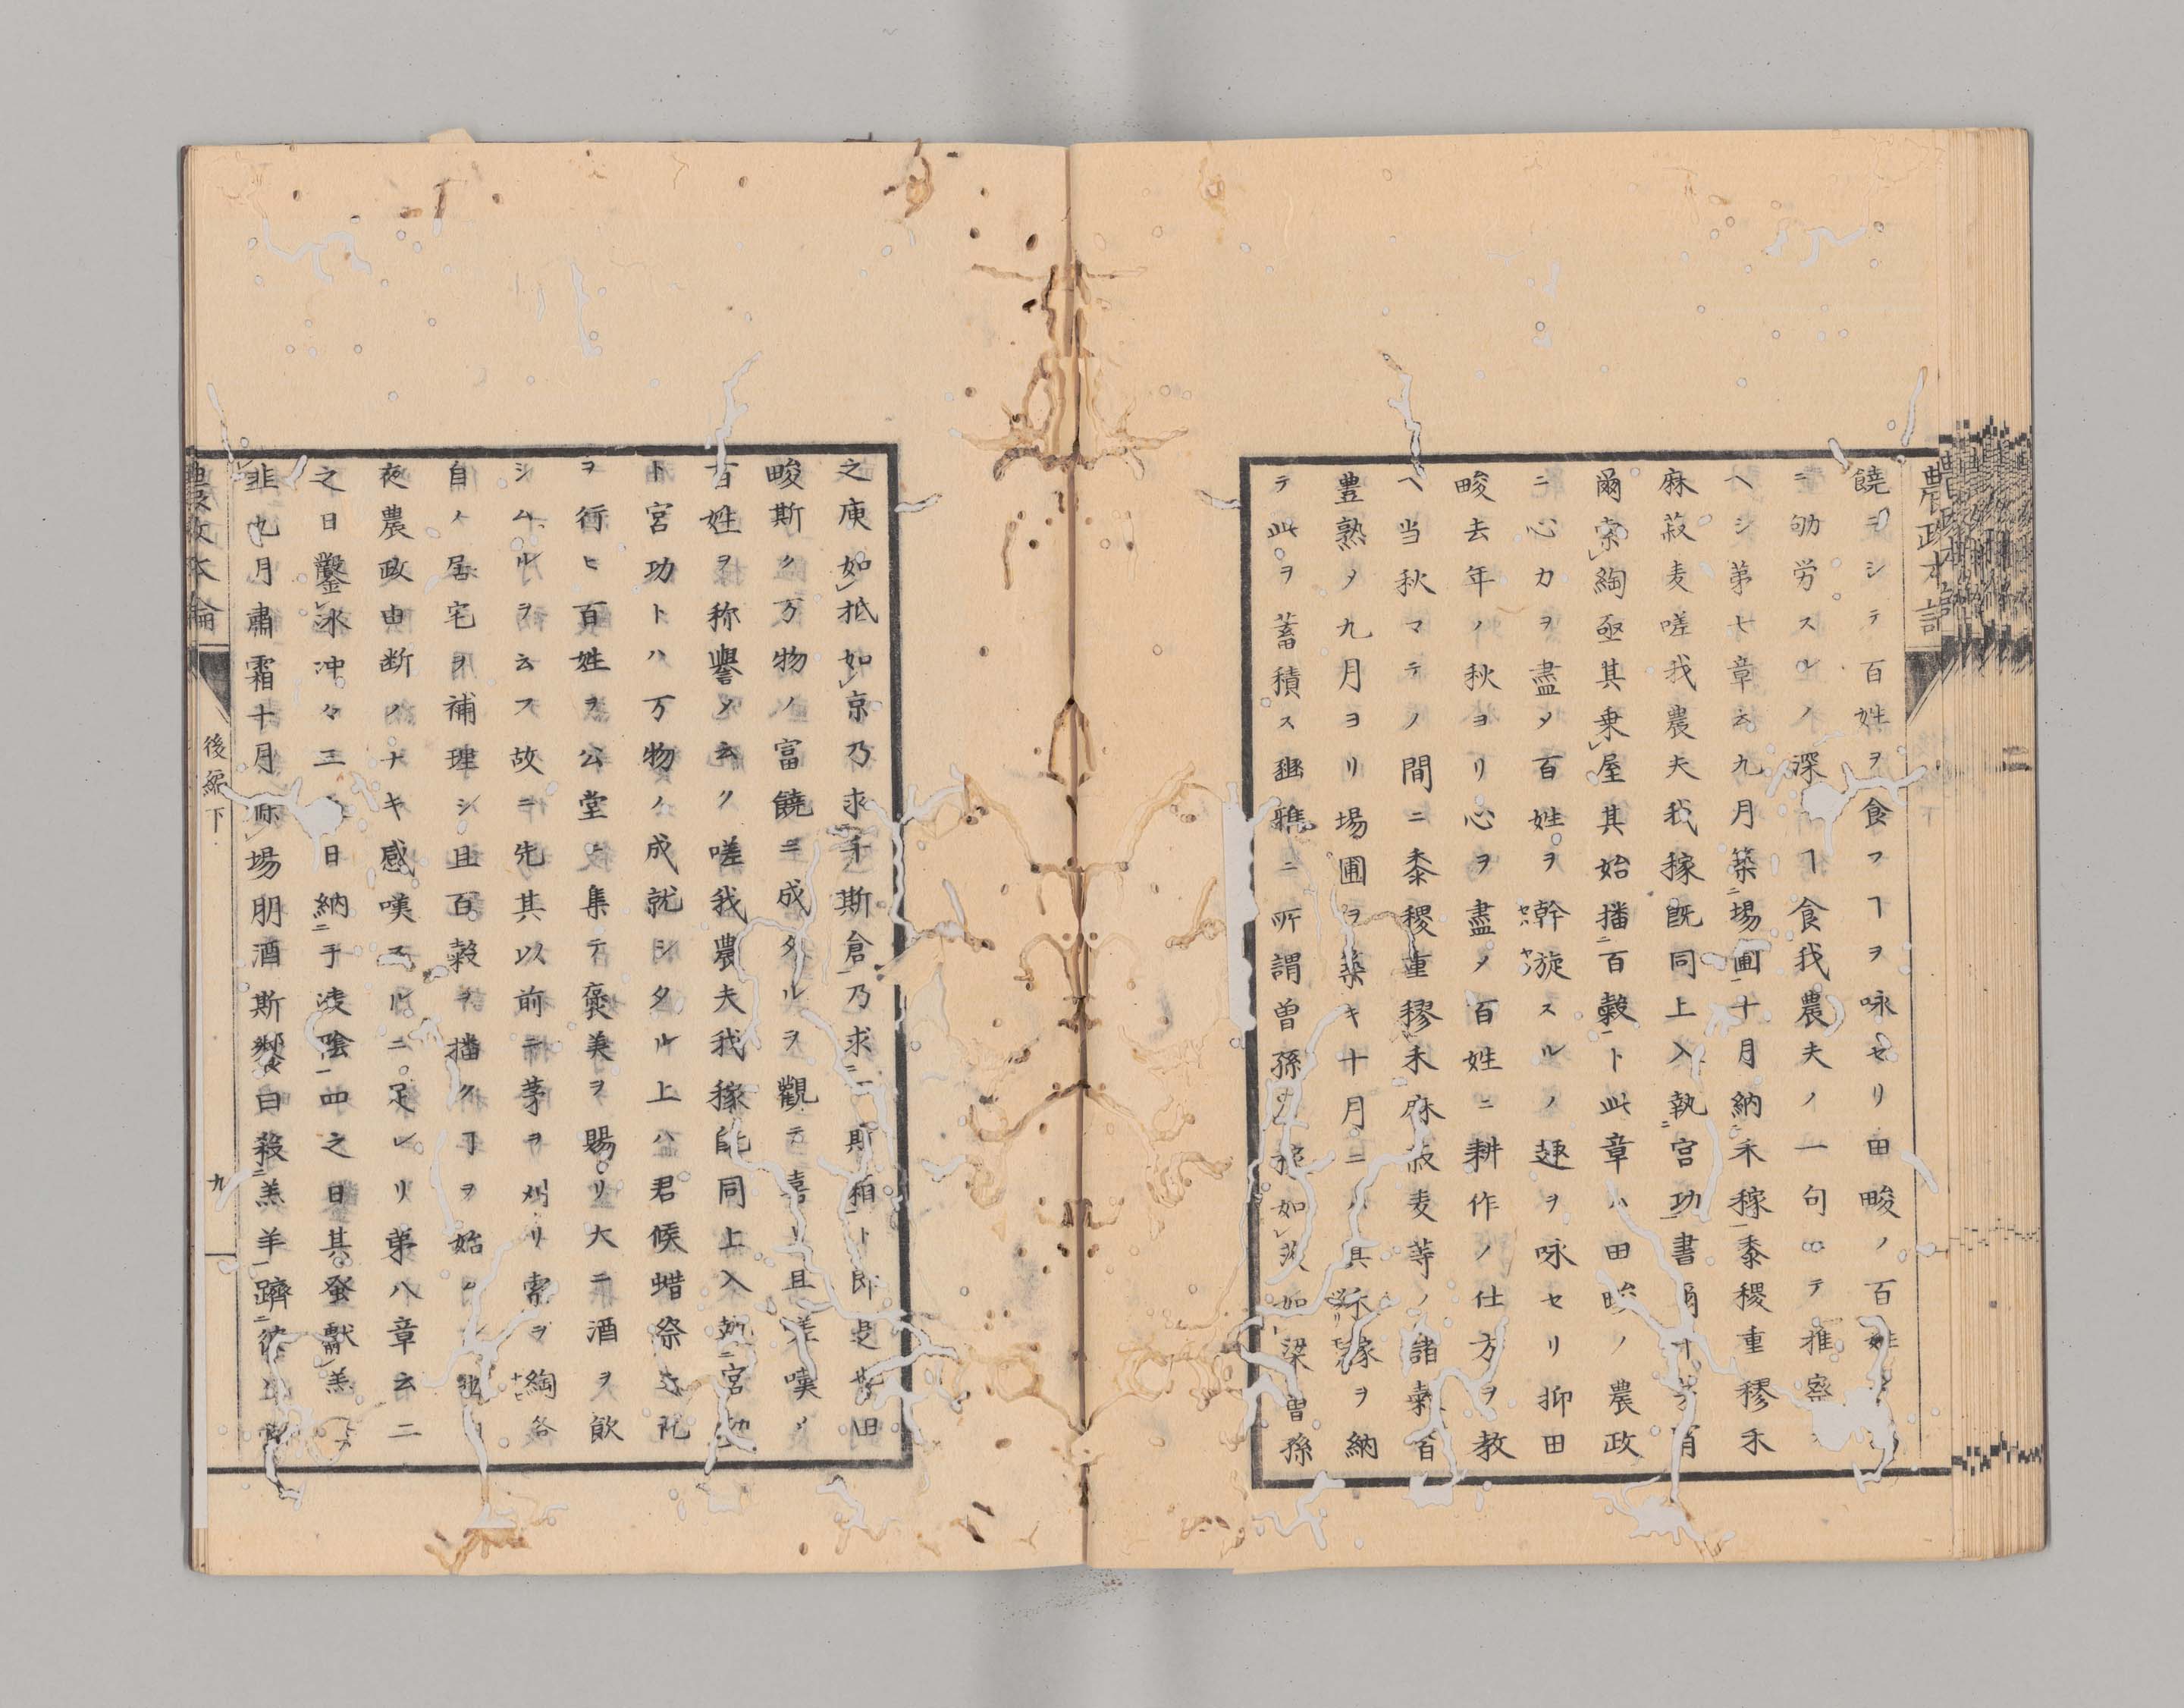 饒ヲシテ百姓ヲ食フヿヲ咏セリ田畯ノ百姓
ニ劬労スルノ深 ヿ食我農夫ノ一句 テ推察
ヘシ第七章云九月築二場圃一十月納二禾稼一黍稷重穋禾
麻菽麦嗟我農夫我稼既同上入執二宮功一書爾于茅宵
爾索レ綯亟其乗レ屋其始播二百穀一ト此章ハ田畯ノ農政
ニ心カヲ盡タ百姓ヲ幹旋スルノ趣ヲ咏セリ抑田
畯去年ノ秋ヨリ心ヲ盡ノ百姓ニ耕作ノ仕方ヲ教
ヘ当秋マテノ間ニ黍稷重穋禾麻菽麦等ノ諸穀皆
豊熟タ九月ヨリ場圃ヲ築キ十月ニハ其禾稼ヲ納
テ此ヲ蓄積ス豳雅ニ所謂曽孫 稼如レ茨如レ梁曽孫
之庾如レ抵如レ京乃求二千斯倉一乃求二 斯箱一ト即是 田
畯斯ク万物ノ富饒ニ成タルヲ觀テ喜ヒ且差嘆ノ
百姓ヲ称譽メ云ク嗟我農夫我稼既同上入執二宮功
ト宮功トハ万物ノ成就シタル上ハ君候蜡祭 礼
ヲ行ヒ百姓ヲ公堂ニ集テ褒美ヲ賜リ大ニ酒ヲ飲
シムルヲ云フ故ニ先其以前ニ茅ヲ刈リ索ヲ綯各
自ノ居宅ヲ補理シ且百穀ヲ播クヿヲ始
夜農政由断ノナキ感嘆スルニ足レリ第八章云二
之日鑿レ冰冲々三之日納二于凌陰一四之日其蚤獻レ羔
韭九月肅霜十月滌レ場朋酒斯饗曰殺二羔羊一躋二彼公堂
後編下
九